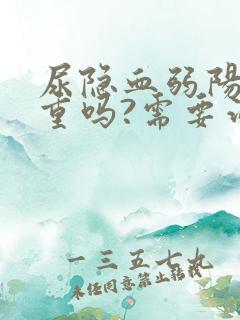 尿隐血弱陽
重吗?需要
一三五七九
未经同意禁止转载